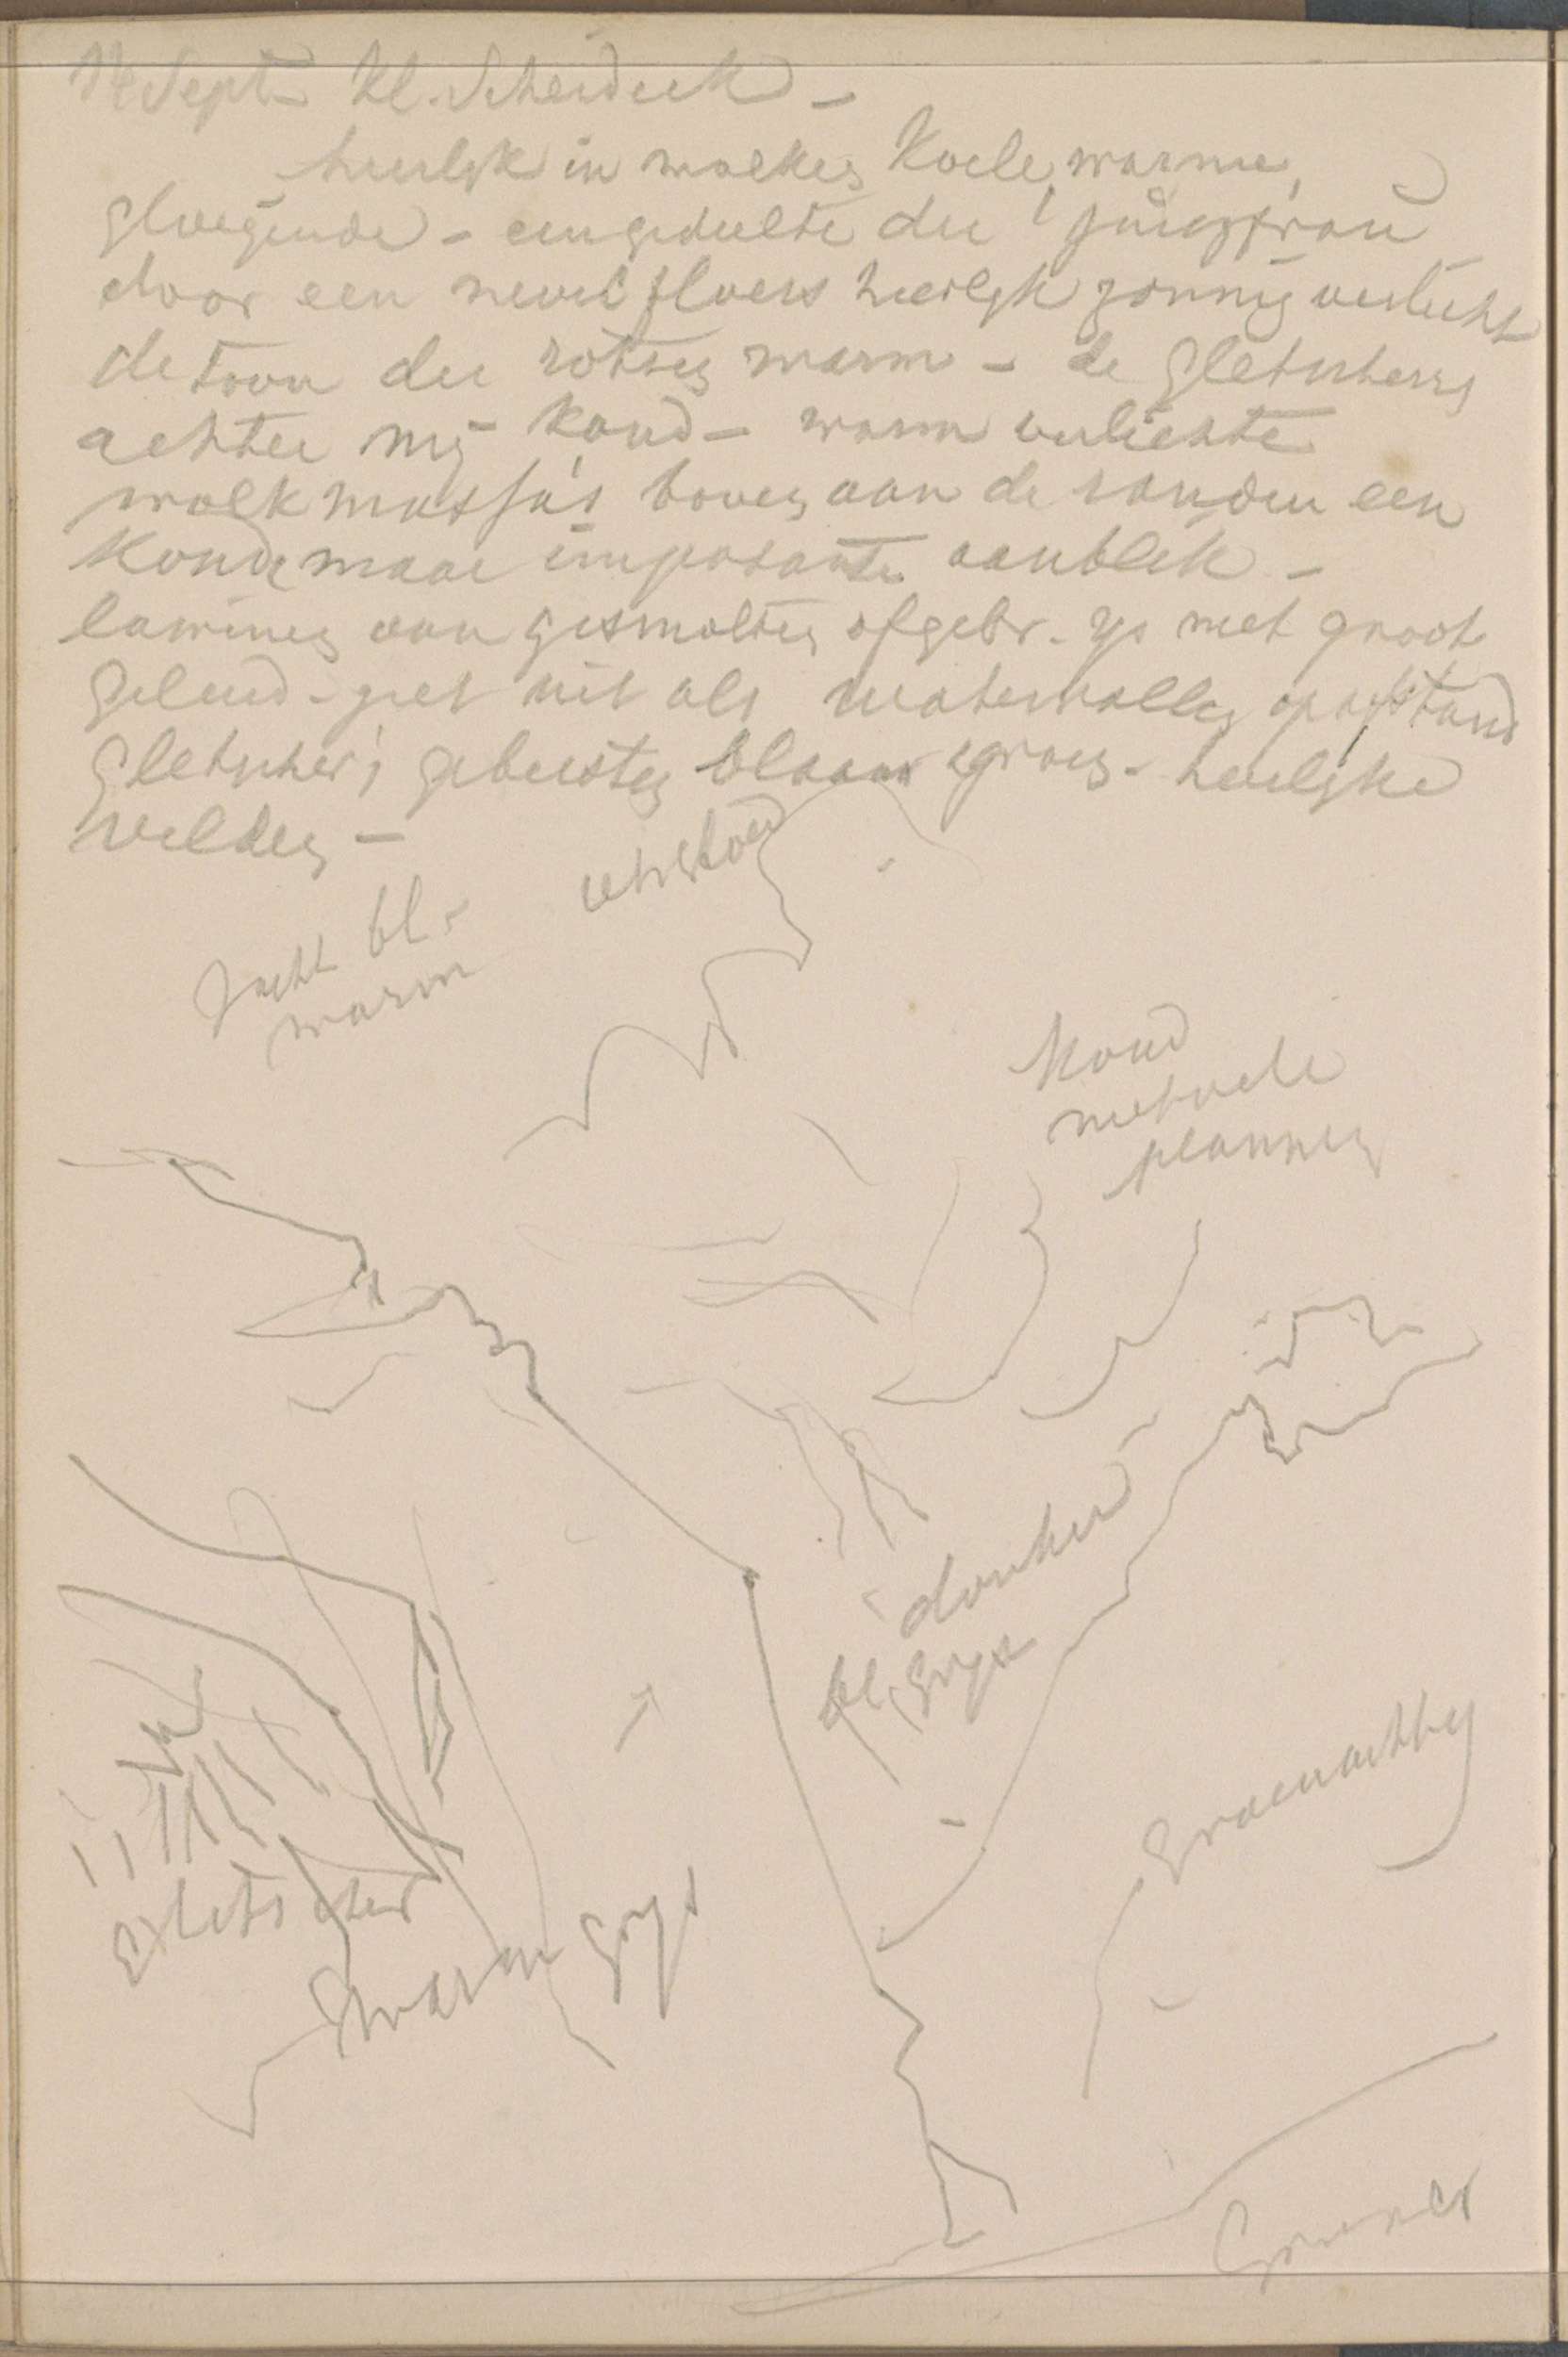 14 Sept Kl. Scheideck -
heerlyk in wolken, koele, warme,
gloeijende - een gedeelte der Jungfrau
door een nevel floers heerlyk zonnig verlicht
de toon der rotsen warm - de gletschers
achter my koud - warm verlichte
wolkmassa's boven aan de randen een
koude maar imposante aanblik -
lawinen van gesmolten afgebr. ys met groot
geluid - ziet uit als watervallen op afstand
gletscher's gebersten blaauw groen - heerlyke
velden -
lucht bl.
warm
koud
met vele
plannen
donker
bl. grys
groenachtig
gletscher
warm grys
groener